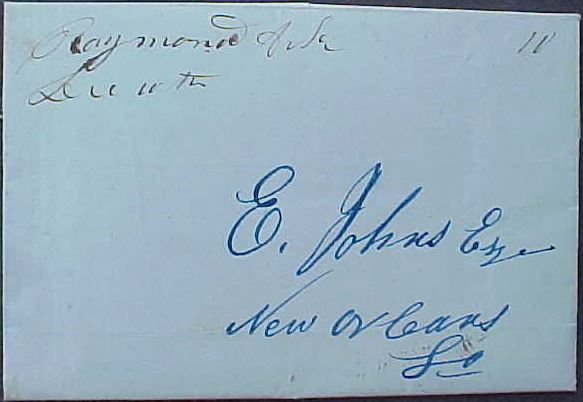 Raymond Ark 10
Dec 10th
E. Johns Esqr
New Orleans
La